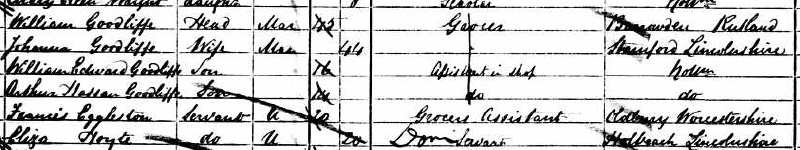 Scholar
William Goodliffe Head Mar Grocer Rutland
Johanna Goodliffe Wife Mar 44 Stamford Lincolnshire
William Edward Goodliffe Son 16 Assistant in shop
Arthur Hassan Goodliffe Son 14 do do
Francis Eggleston Servant U 20 Grocers Assistant Oldbury Worcestershire
Eliza Hoyte do U 20 Dom Servant Holbeach Lincolnshire